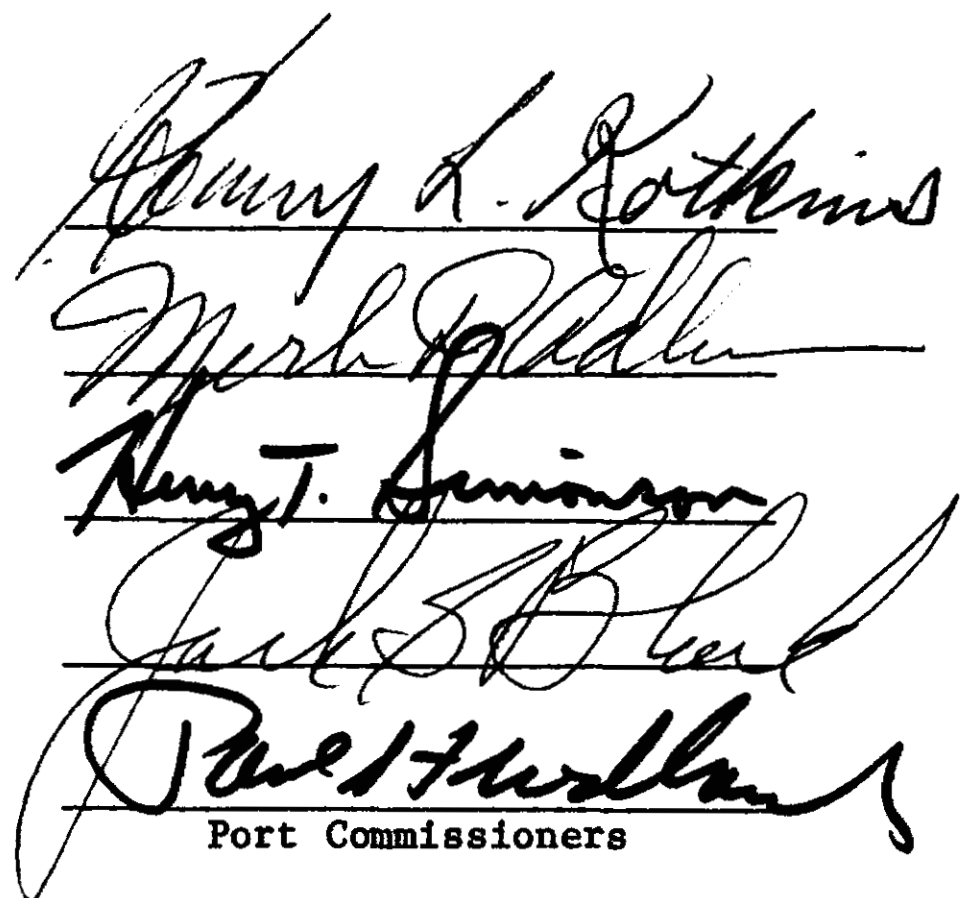 Henry L. Kotkins
Merle D. Adlum
Henry T. Simonson
Jack S. Block
Paul S. Friedlander
Port Commissioners